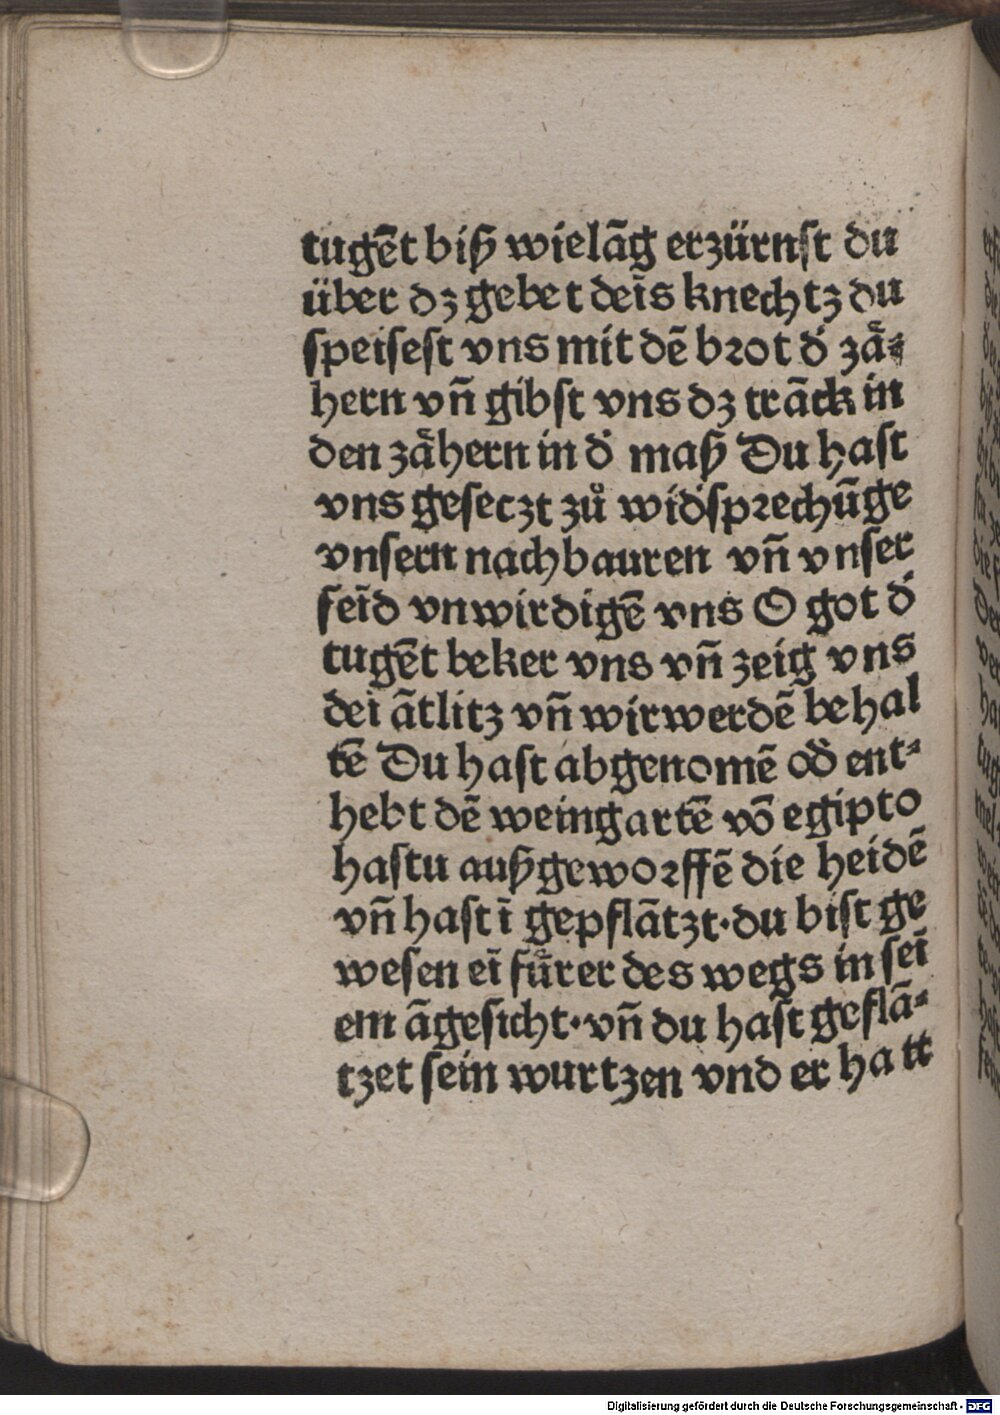 tugēt biß wielāg erzürnst du
über dz gebet deīs knechtz du
speisest vns mit dē brot d' zaͤ-
hern vn̄ gibst vns dz trāck in
den zaͤhern in d' maß Du hast
vns geseczt zuͦ wid'sprechūge
vnsern nachbauren vn̄ vnser
feīd vnwirdigē vns O got d'
tugēt beker vns vn̄ zeig vns
dei ātlitz vn̄ wir werdē behal
tē Du hast abgenomē od' ent-
hebt dē weingartē vō egipto
hastu außgeworffē die heidē
vn̄ hast ī gepflātzt·du bist ge
wesen eī fuͤrer des wegs in seī
em āgesicht·vn̄ du hast geflā-
tzet sein wurtzen vnd er hatt
Digitalisierung gefördert durch die Deutsche Forschungsgemeinschaft - DFG